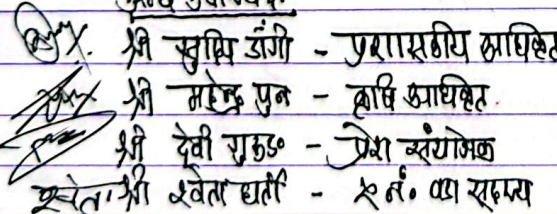 श्री सुमित्र डाँगी - प्रशासकीय अधिकृत
श्री महेन्द्र पुन - कृषि अधिकृत
श्री देवी गुरुङ - प्रेश संयोजक
श्वेता श्री श्वेता घर्ती - ५ नं. वडा सदस्य